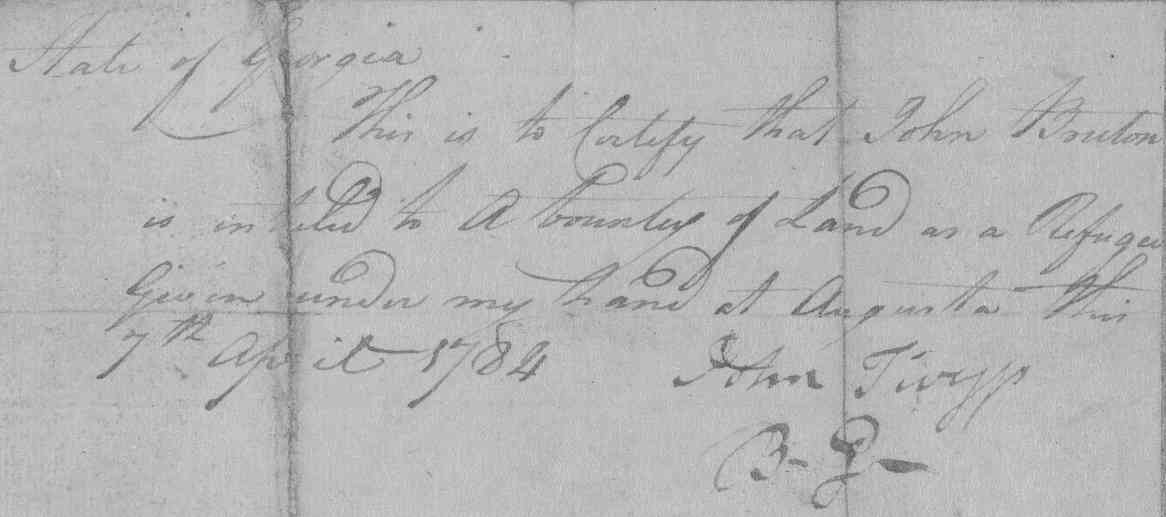 State of Georgia
This is to Certify that John Bruton
is intitled to A bounty of Land as a Refugee
Given under my hand at Augusta this
7th April 1784 John Twiggs
B- G-